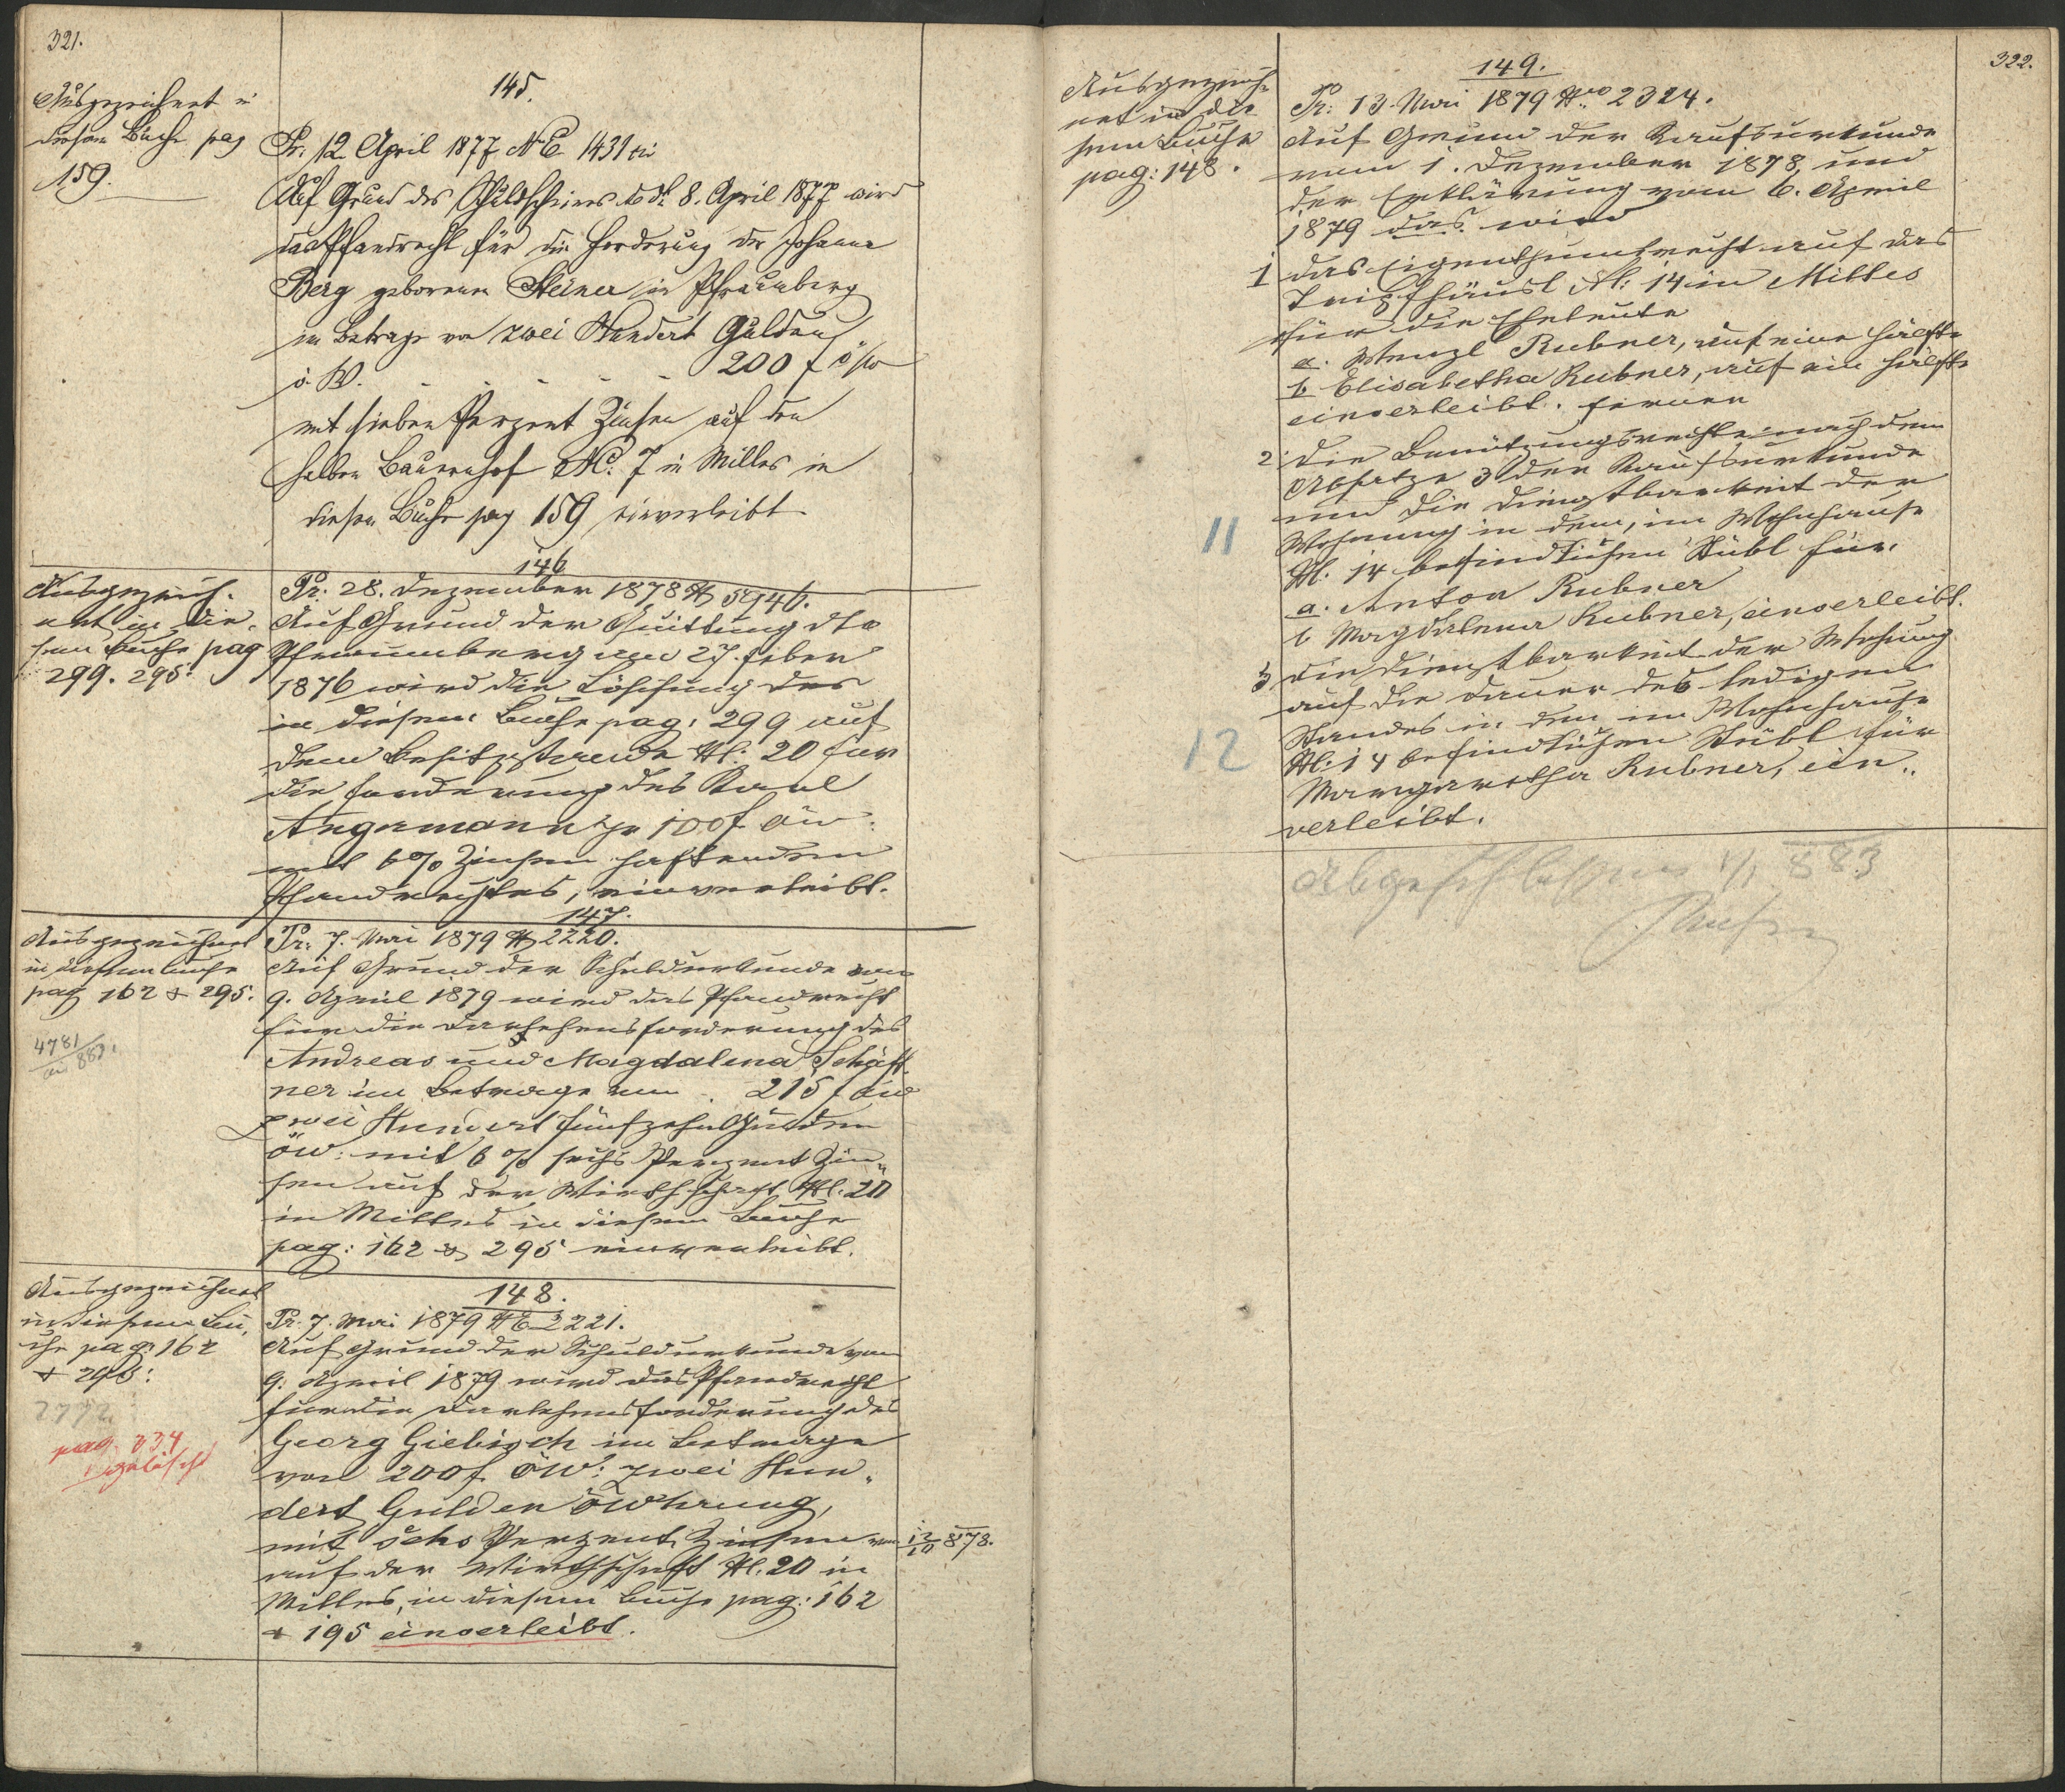 321.
Ausgezeichnet in
diesem Buche pag
159.
145.
Pr. 12 April 1877 NE 1431 civ
Auf Grund des Schuldscheines ddt 8. April 1877 wird
das Pfandrecht für die Forderung der Johanna
Berg geborenen Steiner in Pfraumberg
im Betrage von zwei Hundert Gulden
ö. W. - - - - 200 f ö/w
mit sieben Perzent Zinsen auf den
halben Bauernhof NC. 7 in Milles in
diesem Buche pag 159 einverleibt
Ausgezeich-
net in die-
sem Buche pag
299. 295.
146
Pr: 28. Dezember 1878 N 5946.
Auf Grund der Quittung dto
Pfraumberg am 27. Feber
1876 wird die Löschung des
in diesem Buche pag: 299 auf
dem Besitzstande N: 20 für
die Forderung des Karl
Angermann pr 100 f öw:
mit 6% Zinsen haftenden
Pfandrechtes, einverleibt.
Ausgezeichnet
in diesem Buche
pag 162 & 295.
4781/883.
147.
Pr: 7. Mai 1879 N 2220.
Auf Grund der Schuldurkunde vom
9. April 1879 wird das Pfandrecht
für die Darlehensforderung des
Andreas und Magdalena Schaff-
ner im Betrage von . 215 f öw
zwei Hundert fünfzehn Gulden
öw: mit 6% sechs Perzent Zin-
sen auf der Wirthschaft N. 20
in Milles in diesem Buche
pag: 162 & 295 einverleibt.
Ausgezeichnet
in diesem Bu-
che pag: 162
& 295:
2772
pag. 334
gelöscht
148.
Pr. 7. Mai 1879 NE 2221.
Auf Grund der Schuldurkunde vom
9. April 1879 wird das Pfandrecht
für die Darlehensforderung des
Georg Giebisch im Betrage
von 200 f öW: zwei Hun-
dert Gulden öWhrung,
mit sechs Perzent Zinsen vom 12/10 878.
auf der Wirthschaft N. 20 in
Milles, in diesem Buche pag: 162
& 195 einverleibt.
322.
Ausgezeich-
net in die-
sem Buche
pag: 148.
149.
Pr: 13. Mai 1879 Nro 2324.
Auf Grund der Kaufsurkunde
vom 1. Dezember 1878 und
der Erklärung vom 6. April
1879 das. wird
1 das Eigenthumsrecht auf das
Tripfhäusl N: 14 in Milles
für die Eheleute
a. Wenzl Rubner, auf eine Hälfte
b. Elisabetha Rubner, auf ein Hälfte
einverleibt. ferner
2 die Benützungsrechte nach dem
Absatze 3 der Kaufsurkunde
und die Dienstbarkeit der
11 Wohnung in dem, im Wohnhause
N. 14 befindlichen Stübl für
a. Anton Rubner
b Magdalena Rubner, einverleibt.
3 die Dienstbarkeit der Wohnung
auf die Dauer des ledigen
Standes in dem im Wohnhause
12 N: 14 befindlichen Stübl für
Margaretha Rubner, ein-
verleibt.
Abgeschlossen 1/1 883